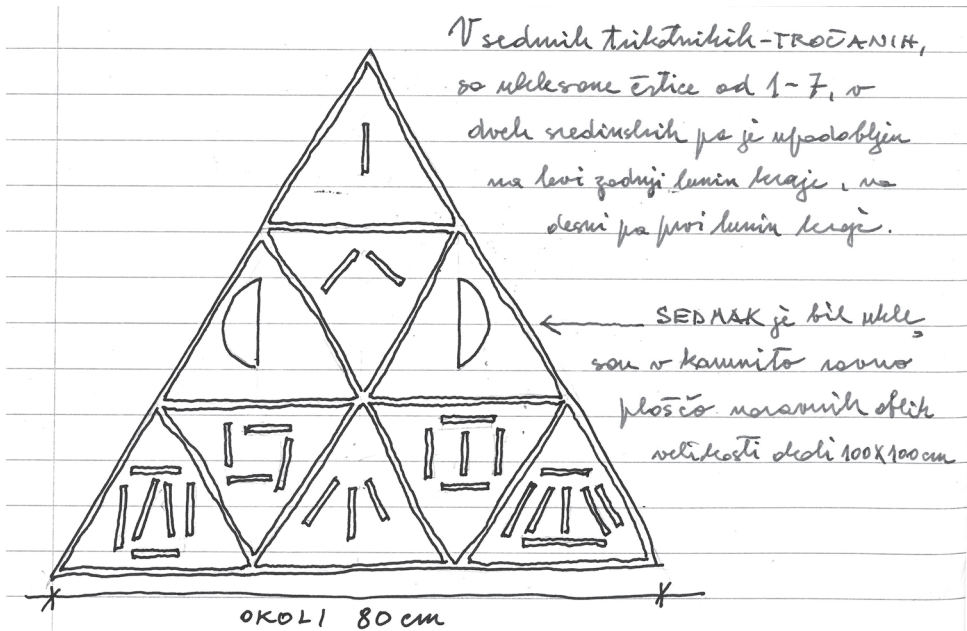 V sedmih trikotnikih-TROČANIH,
so uklesane črtice od 1-7, v
dveh sredinskih pa je upodobljen
na levi zadnji lunin krajc, na
desni pa prvi lunin krajc.
SEDMAK je bil ukle,
san v kamnito ravno
ploščo naravnih oblik
velikosti okoli 100X100cm
OKOLI 80 cm